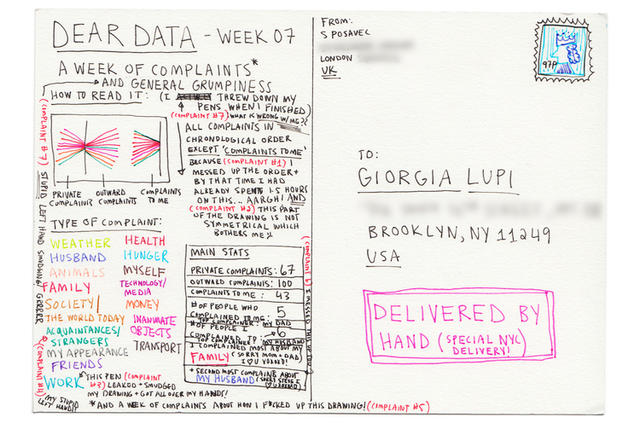 DEAR DATA - WEEK 07
A WEEK OF COMPLAINTS*
AND GENERAL GRUMPINESS
HOW TO READ IT: (I THREW DOWN MY
PENS WHEN I FINISHED)
(COMPLAINT #7) WHAT IS WRONG W/ME?!
ALL COMPLAINTS IN
CHRONOLOGICAL ORDER
EXCEPT 'COMPLAINTS TO ME'
BECAUSE (COMPLAINT #1) I
MESSED UP THE ORDER +
BY THAT TIME I HAD
ALREADY SPENT 1.5 HOURS
ON THIS... AARGH! AND
(COMPLAINT #2) THIS PART
OF THE DRAWING IS NOT
SYMMETRICAL WHICH
BOTHERS ME
PRIVATE COMPLAINTS
OUTWARD COMPLAINTS
COMPLAINTS TO ME
(COMPLAINT #7) STUPID LEFT HAND SMUDGING!
TYPE OF COMPLAINT:
WEATHER
HUSBAND
ANIMALS
FAMILY
SOCIETY/
THE WORLD TODAY
ACQUAINTANCES/
STRANGERS
MY APPEARANCE
FRIENDS
WORK
HEALTH
HUNGER
MYSELF
TECHNOLOGY/
MEDIA
MONEY
INANIMATE
OBJECTS
TRANSPORT
MAIN STATS
PRIVATE COMPLAINTS: 67
OUTWARD COMPLAINTS: 100
COMPLAINTS TO ME: 43
# OF PEOPLE WHO
COMPLAINED TO ME: 5
TOP COMPLAINER: MY DAD
# OF PEOPLE I
COMPLAINED TO: 6
MY HUSBAND
COMPLAINED MOST ABOUT MY
FAMILY (SORRY MOM + DAD)
I ♡ YOU!
+ SECOND MOST COMPLAINTS ABOUT
MY HUSBAND
(COMPLAINT #4)
THIS PEN (COMPLAINT
#3) LEAKED + SMUDGED
MY DRAWING + GOT ALL OVER MY HANDS!
MY STUPID
LEFT HAND!!
*AND A WEEK OF COMPLAINTS ABOUT HOW I F*CKED UP THIS DRAWING! (COMPLAINT #5)
FROM:
S POSAVEC
LONDON
UK
97P
TO:
GIORGIA LUPI
BROOKLYN, NY 11249
USA
DELIVERED BY
HAND (SPECIAL NYC
DELIVERY!)